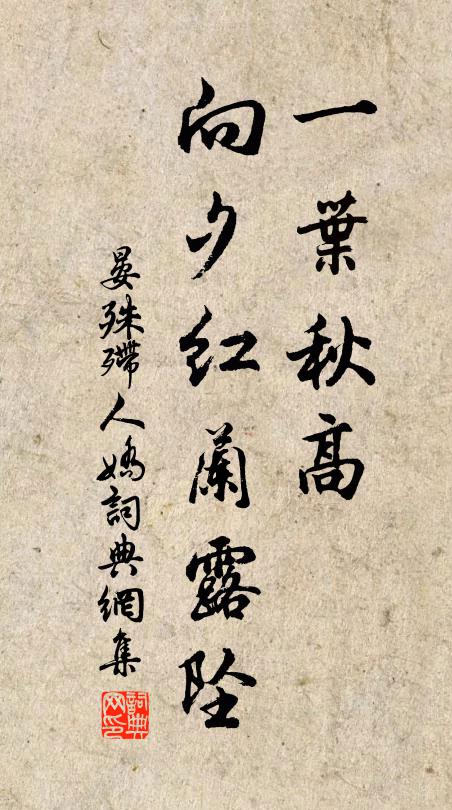 一葉秋高
向夕紅蘭露墜
晏殊殢人嬌詞典網集
詞典
网印